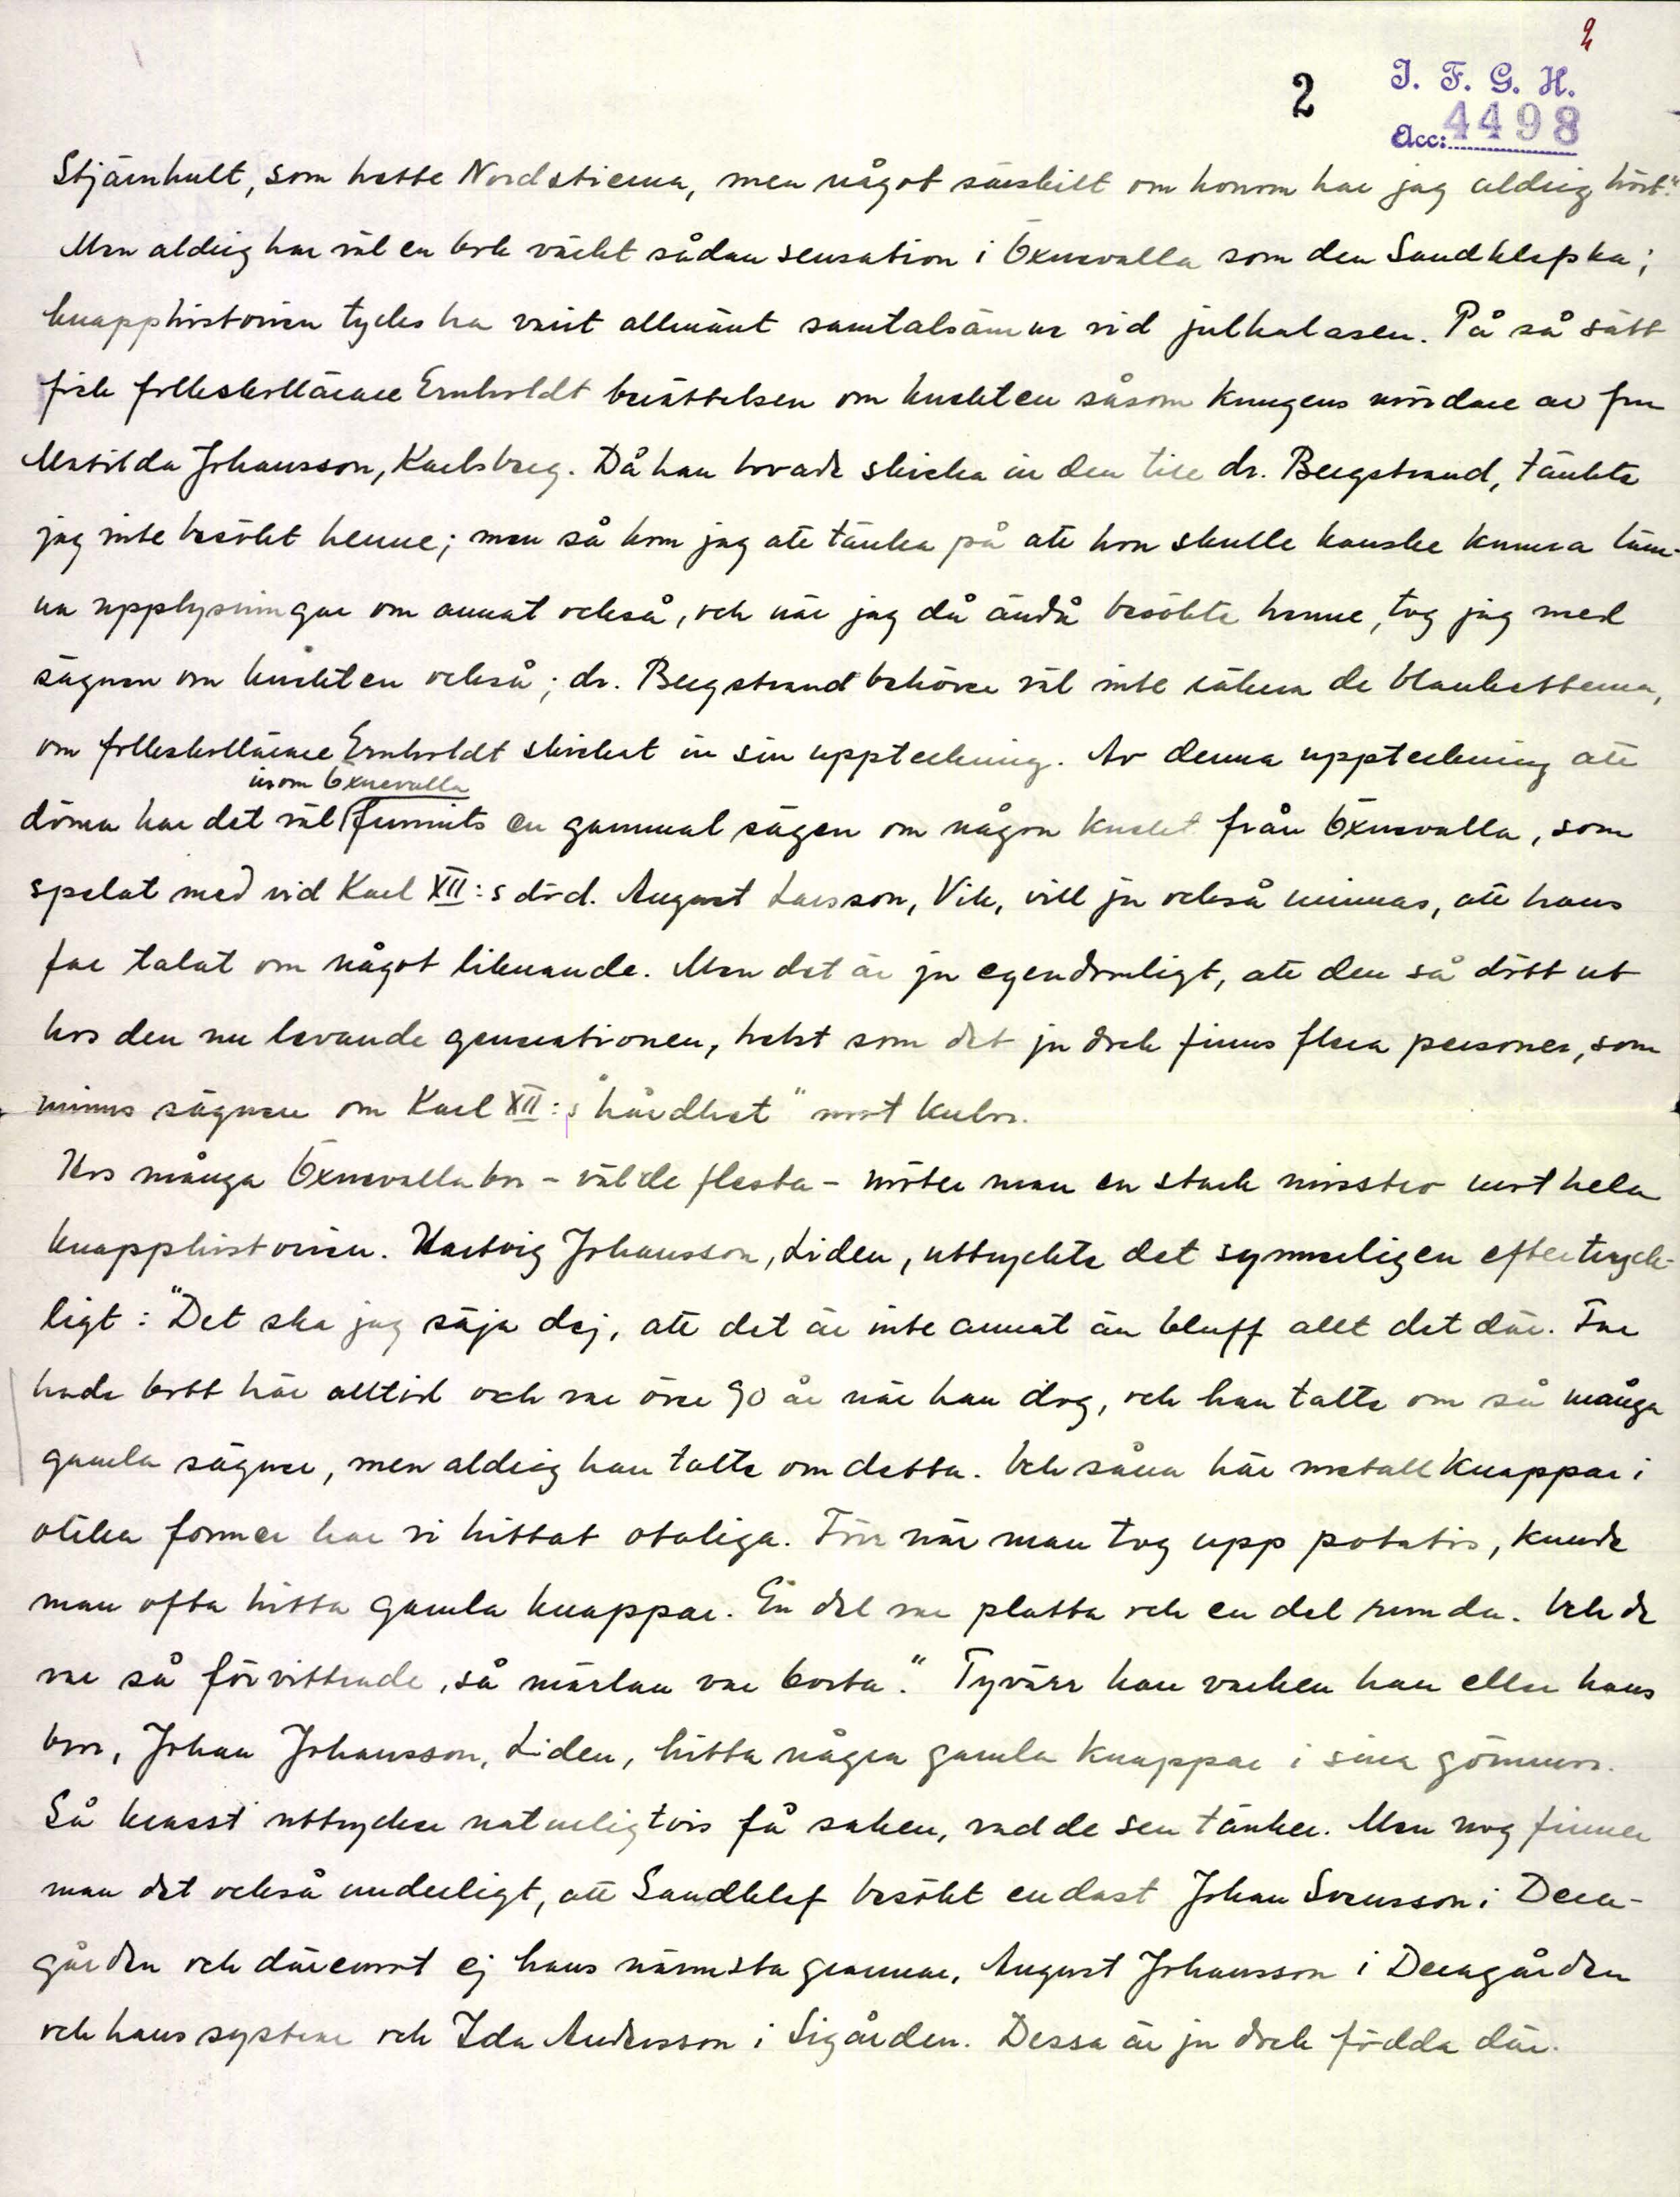 2
2
I. F. G. H.
Acc: 4498
Stjärnhult, som hette Nordstierna, men något särskilt om honom har jag aldrig hört."
Men aldrig har väl en bok väckt sådan sensation i Öxnevalla som den Sandklefska;
knapphistorien tycks ha varit allmänt samtalsämne vid julkalasen. På så sätt
fick folkskollärare Ernholdt berättelsen om knekten såsom kungens mördare av fru
Matilda Johansson, Karlsberg. Då han lovade skicka in den till dr. Bergstrand, tänkte
jag inte besökt henne; men så kom jag att tänka på att hon skulle kanske kunna läm-
na upplysningar om annat också, och när jag då ändå besökte henne, tog jag med
sägnen om knekten också; dr. Bergstrand behöver väl inte räkna de blanketterna,
om folkskollärare Ernholdt skickat in sin uppteckning. Av denna uppteckning att
inom Öxnevalla
döma har det väl funnits en gammal sägen om någon knekt från Öxnevalla, som
spelat med vid Karl XII:s död. August Larsson, Vik, vill ju också minnas, att hans
far talat om något liknande. Men det är ju egendomligt, att den så dött ut
hos den nu levande generationen, helst som det ju dock finns flera personer, som
minns sägnen om Karl XII:s "hårdhet" mot kulor.
Hos många Öxnevallabor - väl de flesta - möter man en stark misstro mot hela
knapphistorien. Hartvig Johansson, Liden, uttryckte det synnerligen eftertryck-
ligt: "Det ska jag säja dej, att det är inte annat än bluff allt det där. Far
hade bott här alltid och var över 90 år när han dog, och han talte om så många
gamla sägner, men aldrig han talte om detta. Och såna här metallknappar i
olika former har vi hittat otaliga. Förr när man tog upp potatis, kunde
man ofta hitta gamla knappar. En del var platta och en del runda. Och de
var så förvittrade, så märlan var borta." Tyvärr kan varken han eller hans
bror, Johan Johansson, Liden, hitta några gamla knappar i sina gömmor.
Så krasst uttrycker naturligtvis få saken, vad de sen tänker. Men nog finner
man det också underligt, att Sandklef besökt endast Johan Svensson i Dera-
gården och däremot ej hans närmsta grannar, August Johansson i Deragården
och hans systrar och Ida Andersson i Sigården. Dessa är ju dock födda där.